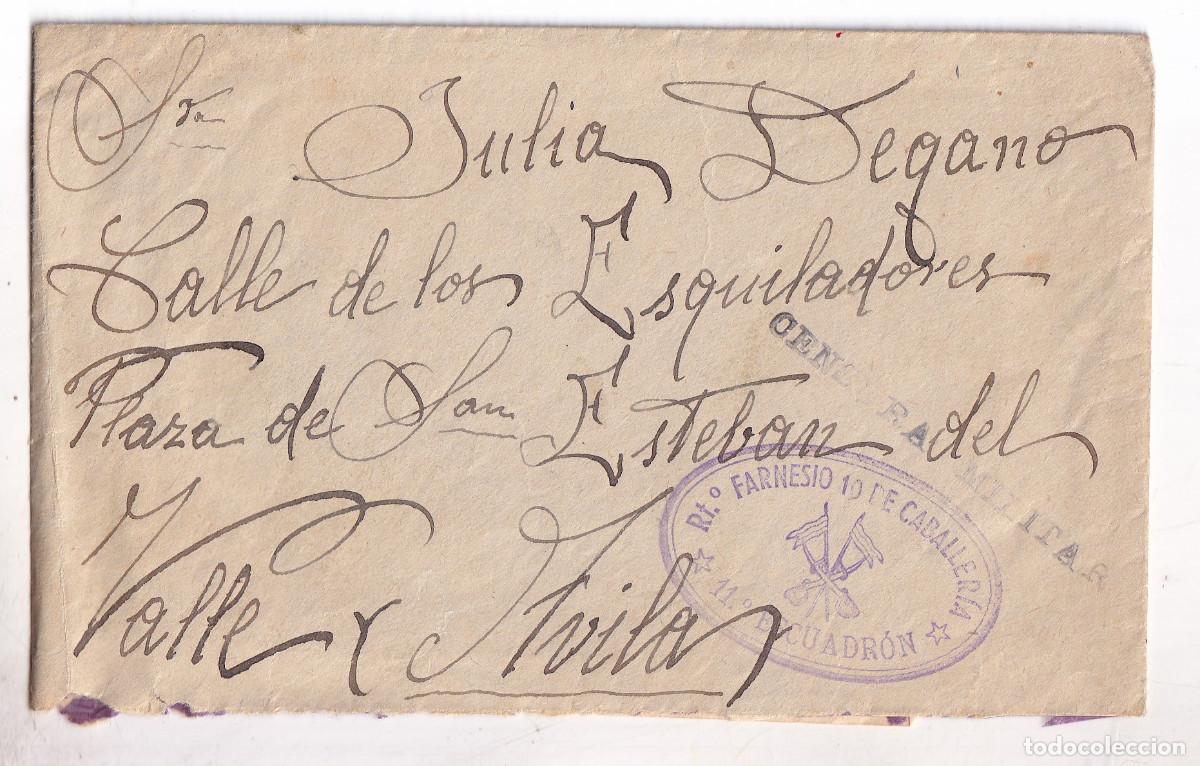 Sra Julia Degano
Calle de los Esquiladores
Plaza de San Esteban del
Valle (Avila)
CENSURA MILITAR
Rt.º FARNESIO 10 DE CABALLERÍA
11.º ESCUADRÓN
todocoleccion